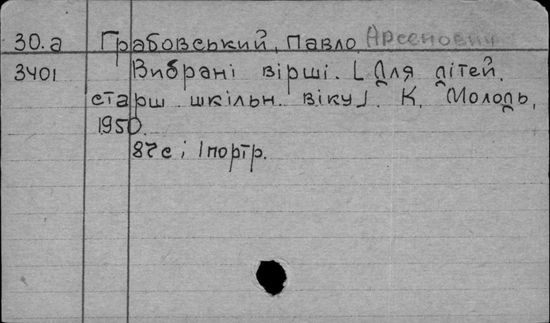 30.а Грабовський, Павло Арсенович
3401 Вибрані вірші. [Для дітей
старш. шкільн. віку]. К. Молодь,
1950.
87с і 1 портр.